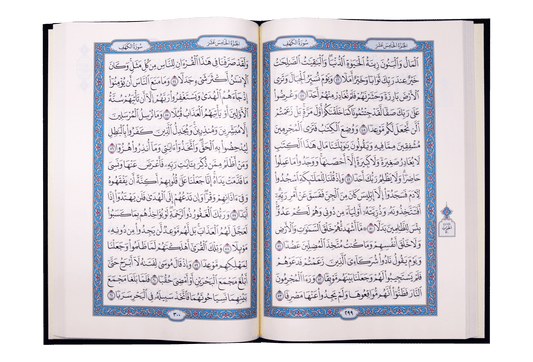 الجزء الخامس عشر
سورة الكهف
ٱلْمَالُ وَٱلْبَنُونَ زِينَةُ ٱلْحَيَوٰةِ ٱلدُّنْيَا وَٱلْبَٰقِيَٰتُ ٱلصَّٰلِحَٰتُ
خَيْرٌ عِندَ رَبِّكَ ثَوَابًا وَخَيْرٌ أَمَلًا ٤٦ وَيَوْمَ نُسَيِّرُ ٱلْجِبَالَ وَتَرَى
ٱلْأَرْضَ بَارِزَةً وَحَشَرْنَٰهُمْ فَلَمْ نُغَادِرْ مِنْهُمْ أَحَدًا ٤٧ وَعُرِضُوا۟
عَلَىٰ رَبِّكَ صَفًّا لَّقَدْ جِئْتُمُونَا كَمَا خَلَقْنَٰكُمْ أَوَّلَ مَرَّةٍۭ بَلْ زَعَمْتُمْ
أَلَّن نَّجْعَلَ لَكُم مَّوْعِدًا ٤٨ وَوُضِعَ ٱلْكِتَٰبُ فَتَرَى ٱلْمُجْرِمِينَ
مُشْفِقِينَ مِمَّا فِيهِ وَيَقُولُونَ يَٰوَيْلَتَنَا مَالِ هَٰذَا ٱلْكِتَٰبِ
لَا يُغَادِرُ صَغِيرَةً وَلَا كَبِيرَةً إِلَّآ أَحْصَىٰهَا وَوَجَدُوا۟ مَا عَمِلُوا۟
حَاضِرًا وَلَا يَظْلِمُ رَبُّكَ أَحَدًا ٤٩ وَإِذْ قُلْنَا لِلْمَلَٰٓئِكَةِ ٱسْجُدُوا۟
لِءَادَمَ فَسَجَدُوٓا۟ إِلَّآ إِبْلِيسَ كَانَ مِنَ ٱلْجِنِّ فَفَسَقَ عَنْ أَمْرِ رَبِّهِۦٓ
أَفَتَتَّخِذُونَهُۥ وَذُرِّيَّتَهُۥٓ أَوْلِيَآءَ مِن دُونِى وَهُمْ لَكُمْ عَدُوٌّۢ
بِئْسَ لِلظَّٰلِمِينَ بَدَلًا ٥٠ مَّآ أَشْهَدتُّهُمْ خَلْقَ ٱلسَّمَٰوَٰتِ وَٱلْأَرْضِ
وَلَا خَلْقَ أَنفُسِهِمْ وَمَا كُنتُ مُتَّخِذَ ٱلْمُضِلِّينَ عَضُدًا ٥١
وَيَوْمَ يَقُولُ نَادُوا۟ شُرَكَآءِىَ ٱلَّذِينَ زَعَمْتُمْ فَدَعَوْهُمْ
فَلَمْ يَسْتَجِيبُوا۟ لَهُمْ وَجَعَلْنَا بَيْنَهُم مَّوْبِقًا ٥٢ وَرَءَا ٱلْمُجْرِمُونَ
ٱلنَّارَ فَظَنُّوٓا۟ أَنَّهُم مُّوَاقِعُوهَا وَلَمْ يَجِدُوا۟ عَنْهَا مَصْرِفًا ٥٣
٢٩٩
الجزء الخامس عشر
سورة الكهف
وَلَقَدْ صَرَّفْنَا فِى هَٰذَا ٱلْقُرْءَانِ لِلنَّاسِ مِن كُلِّ مَثَلٍ وَكَانَ
ٱلْإِنسَٰنُ أَكْثَرَ شَىْءٍ جَدَلًا ٥٤ وَمَا مَنَعَ ٱلنَّاسَ أَن يُؤْمِنُوٓا۟
إِذْ جَآءَهُمُ ٱلْهُدَىٰ وَيَسْتَغْفِرُوا۟ رَبَّهُمْ إِلَّآ أَن تَأْتِيَهُمْ سُنَّةُ
ٱلْأَوَّلِينَ أَوْ يَأْتِيَهُمُ ٱلْعَذَابُ قُبُلًا ٥٥ وَمَا نُرْسِلُ ٱلْمُرْسَلِينَ
إِلَّا مُبَشِّرِينَ وَمُنذِرِينَ وَيُجَٰدِلُ ٱلَّذِينَ كَفَرُوا۟ بِٱلْبَٰطِلِ
لِيُدْحِضُوا۟ بِهِ ٱلْحَقَّ وَٱتَّخَذُوٓا۟ ءَايَٰتِى وَمَآ أُنذِرُوا۟ هُزُوًا ٥٦
وَمَنْ أَظْلَمُ مِمَّن ذُكِّرَ بِـَٔايَٰتِ رَبِّهِۦ فَأَعْرَضَ عَنْهَا وَنَسِىَ
مَا قَدَّمَتْ يَدَاهُ إِنَّا جَعَلْنَا عَلَىٰ قُلُوبِهِمْ أَكِنَّةً أَن يَفْقَهُوهُ
وَفِىٓ ءَاذَانِهِمْ وَقْرًا وَإِن تَدْعُهُمْ إِلَى ٱلْهُدَىٰ فَلَن يَهْتَدُوٓا۟ إِذًا
أَبَدًا ٥٧ وَرَبُّكَ ٱلْغَفُورُ ذُو ٱلرَّحْمَةِ لَوْ يُؤَاخِذُهُم بِمَا كَسَبُوا۟
لَعَجَّلَ لَهُمُ ٱلْعَذَابَ بَل لَّهُم مَّوْعِدٌ لَّن يَجِدُوا۟ مِن دُونِهِۦ
مَوْئِلًا ٥٨ وَتِلْكَ ٱلْقُرَىٰٓ أَهْلَكْنَٰهُمْ لَمَّا ظَلَمُوا۟ وَجَعَلْنَا
لِمَهْلِكِهِم مَّوْعِدًا ٥٩ وَإِذْ قَالَ مُوسَىٰ لِفَتَىٰهُ لَآ أَبْرَحُ حَتَّىٰٓ
أَبْلُغَ مَجْمَعَ ٱلْبَحْرَيْنِ أَوْ أَمْضِىَ حُقُبًا ٦٠ فَلَمَّا بَلَغَا مَجْمَعَ
بَيْنِهِمَا نَسِيَا حُوتَهُمَا فَٱتَّخَذَ سَبِيلَهُۥ فِى ٱلْبَحْرِ سَرَبًا ٦١
٣٠٠